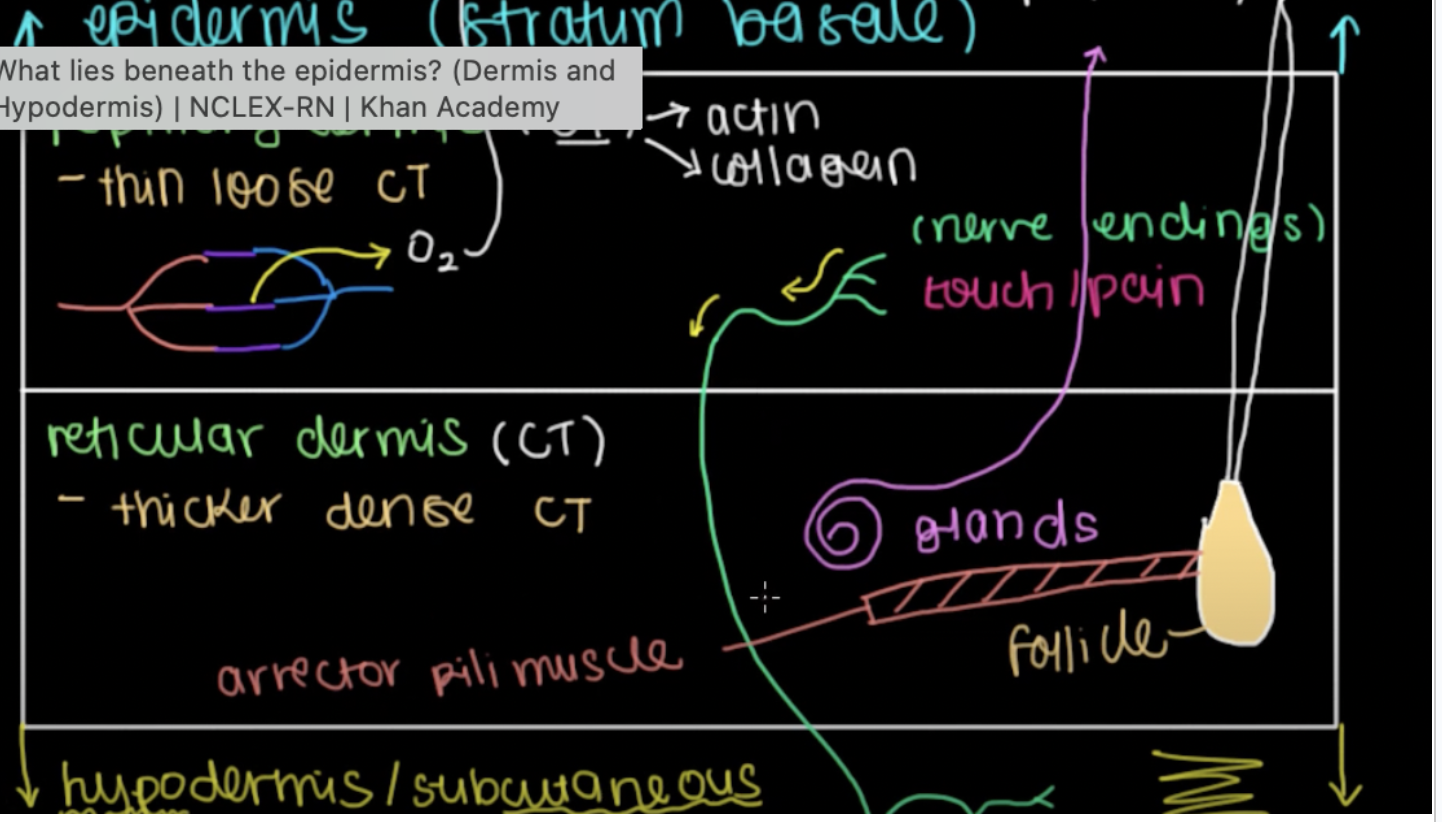 epidermis (stratum basale)
What lies beneath the epidermis? (Dermis and
Hypodermis) | NCLEX-RN | Khan Academy
→ actin
→ collagen
- thin loose CT
O₂
(nerve endings)
touch/pain
reticular dermis (CT)
- thicker dense CT
glands
follicle
arrector pili muscle
hypodermis/subcutaneous